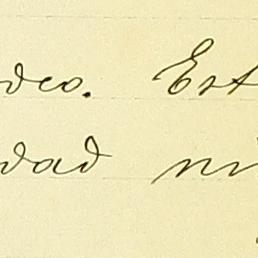 deo. Est
dad ni